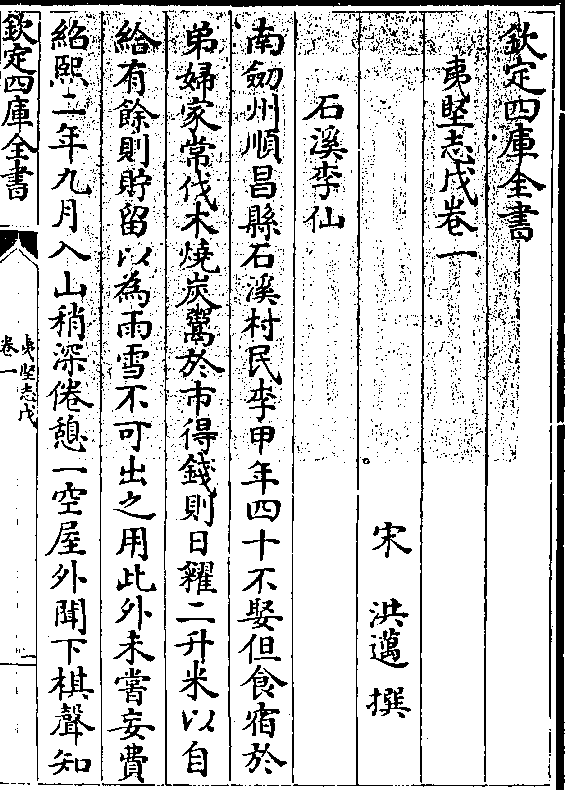 欽定四庫全書
夷堅志戊卷一
宋 洪邁 撰
石溪李仙
南劒州順昌縣石溪村民李甲年四十不娶但食宿於
弟婦家常伐木燒炭鬻於市得錢則日糴二升米以自
給有餘則貯留以為雨雪不可出之用此外未嘗妄費
紹熙二年九月入山稍深倦憩一空屋外聞下棋聲知
欽定四庫全書
夷堅志戊
卷一
一